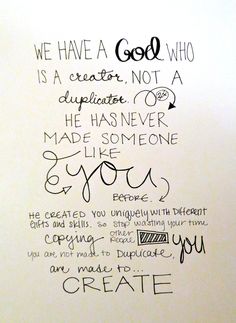 WE HAVE A God WHO
IS A creator, NOT A
duplicator. 2x
HE HAS NEVER
MADE SOMEONE
LIKE
YOU
BEFORE.
HE CREATED YOU UNIQUELY WITH DIFFERENT
GIFTS AND SKILLS. SO STOP WASTING YOUR TIME
COPYING other People YOU
YOU ARE NOT MADE TO DUPLICATE,
are made to...
CREATE